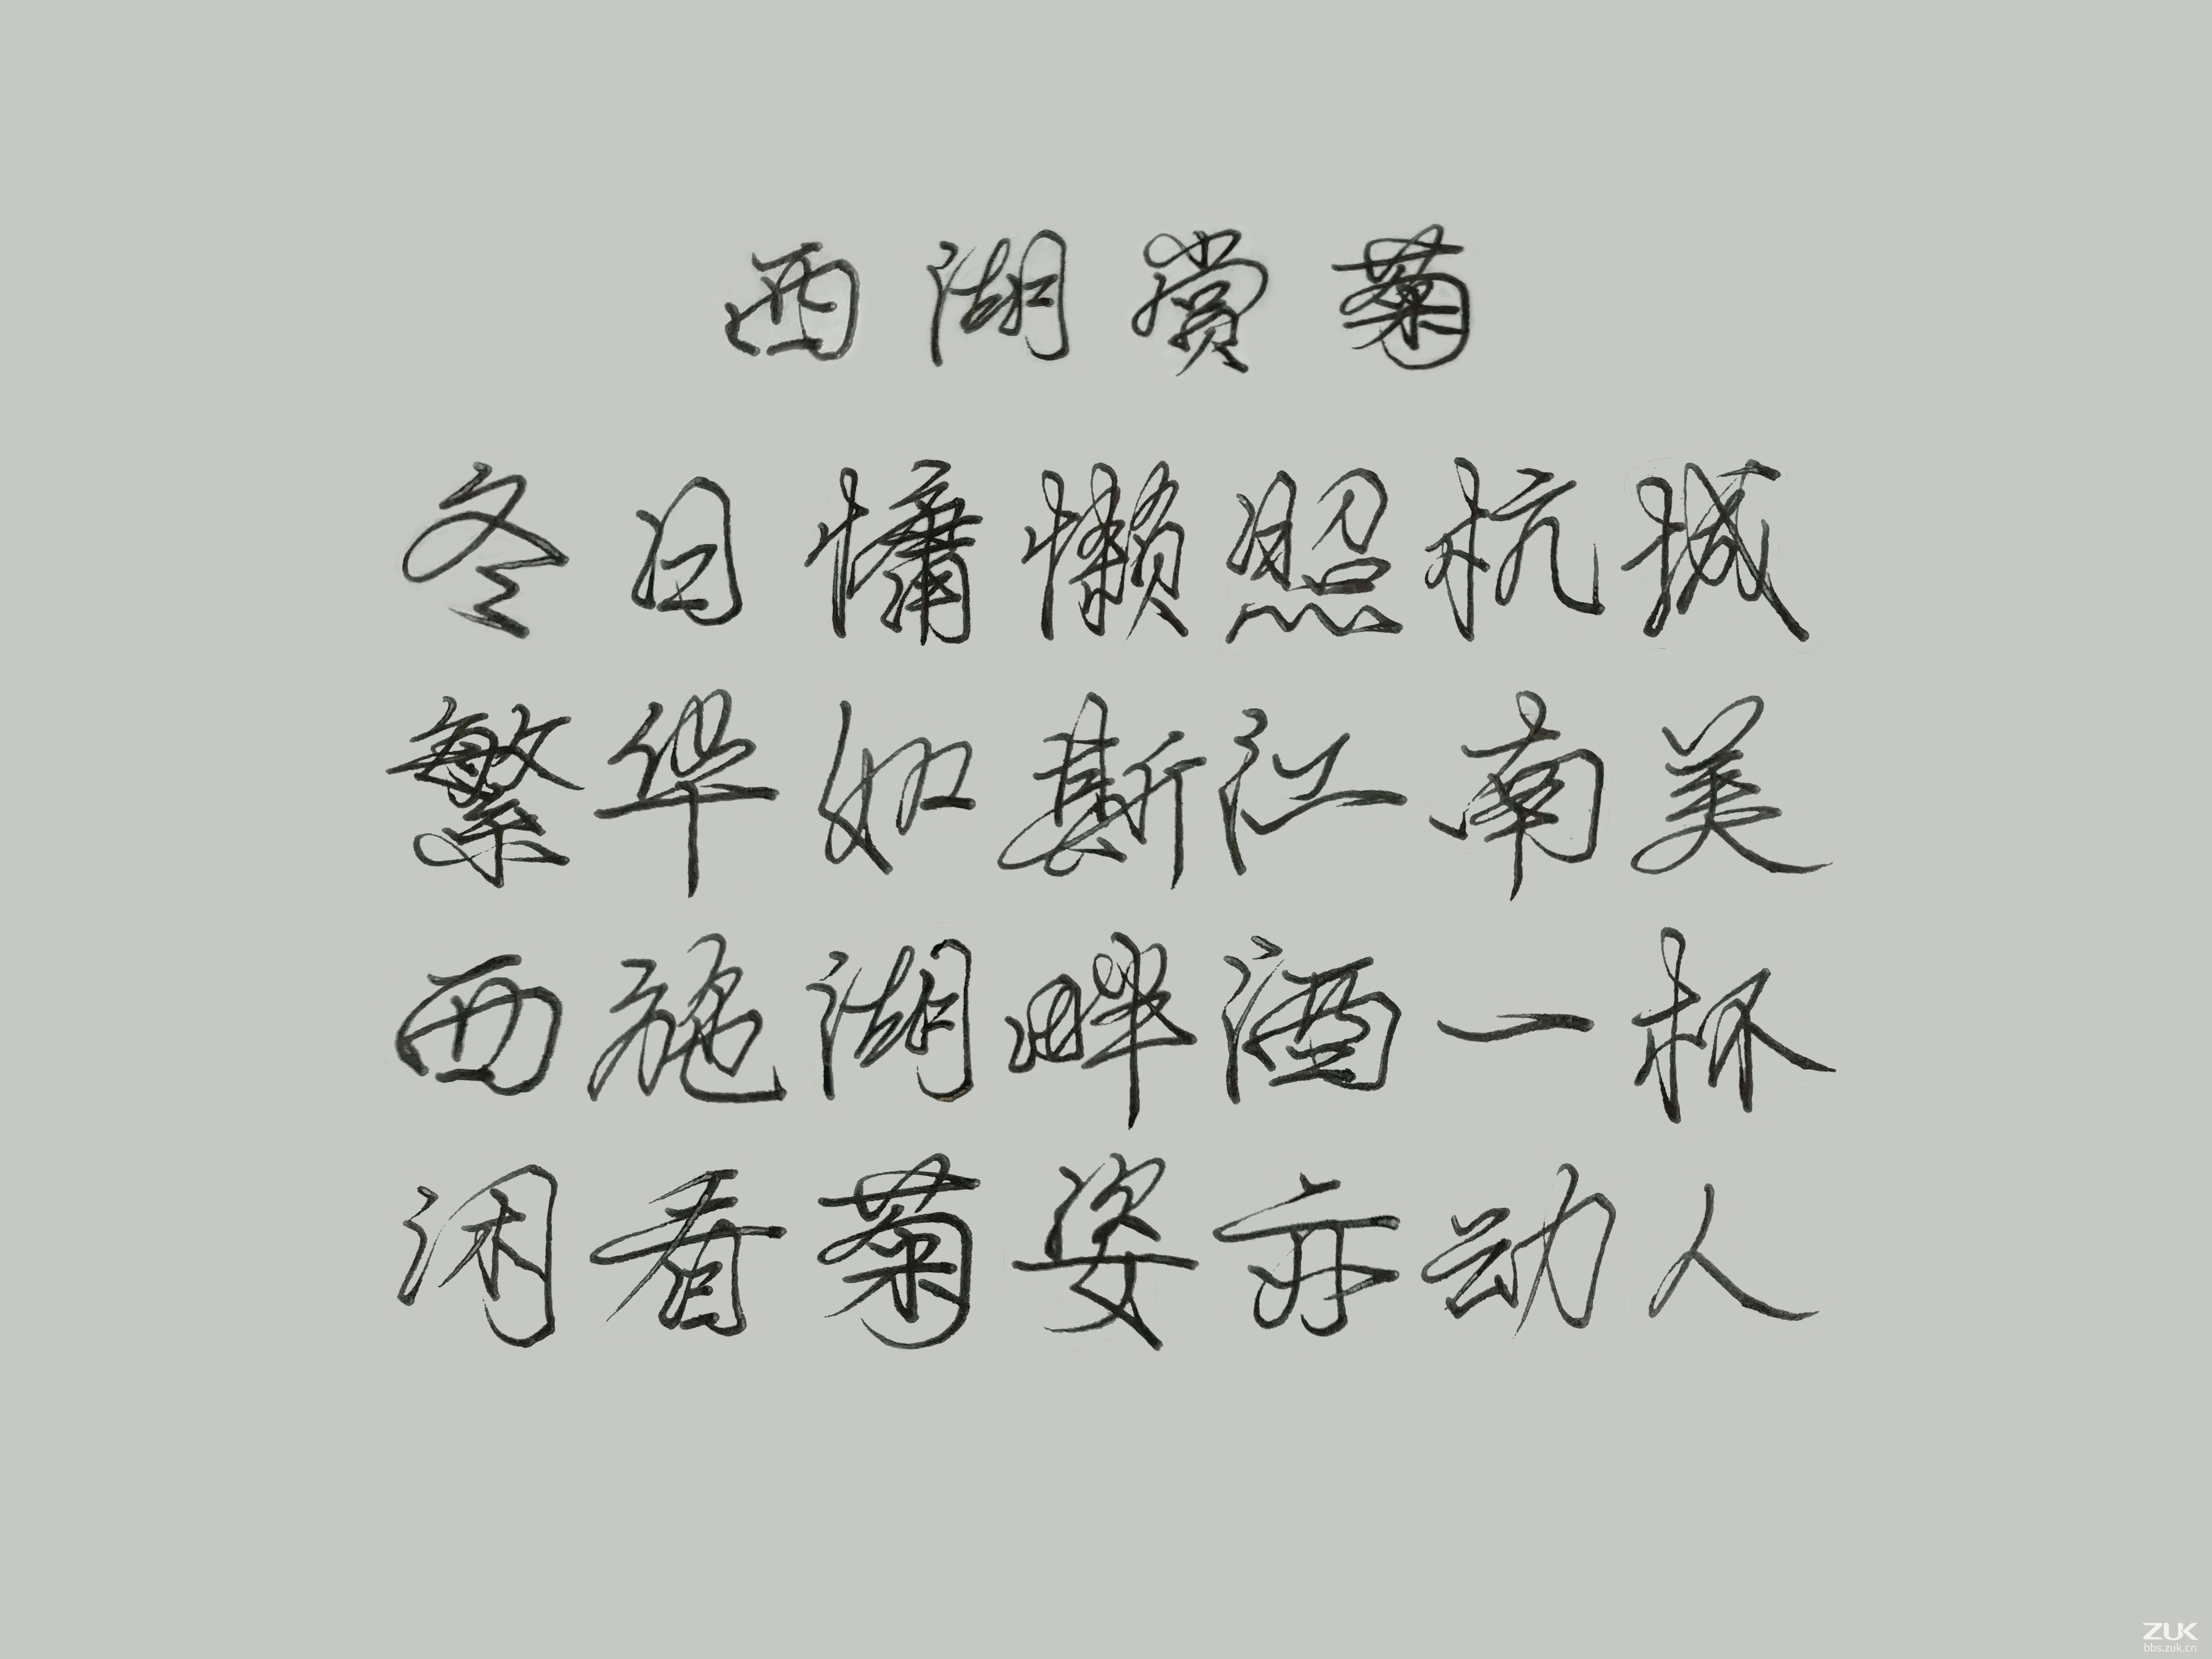 西湖赏菊
冬日慵懒照杭城
繁华如斯江南美
西施湖畔酒一杯
闲看菊姿亦动人
ZUK
bbs.zuk.cn